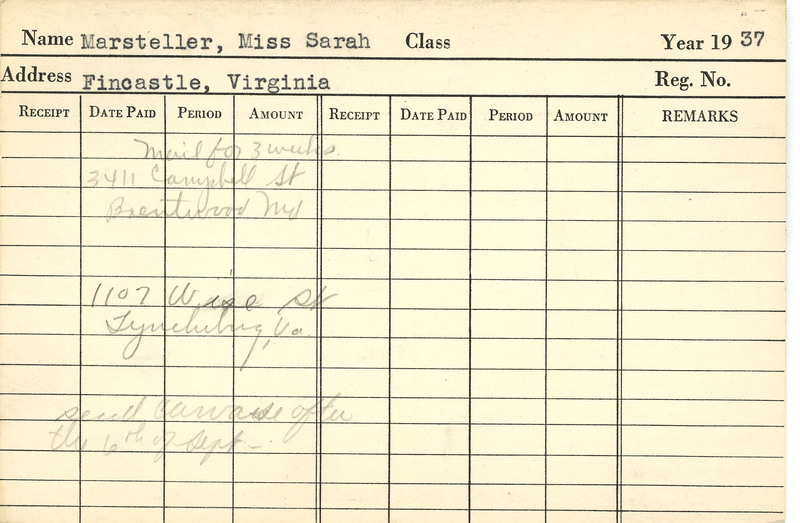 Name Marsteller, Miss Sarah Class Year 19 37
Address Fincastle, Virginia Reg. No.
RECEIPT DATE PAID PERIOD AMOUNT RECEIPT DATE PAID PERIOD AMOUNT REMARKS
Mail for 3 weeks
3411 Campbell St
Brentwood Md
1107 Wise St
Lynchburg, Va.
send after
the 6th of Sept-